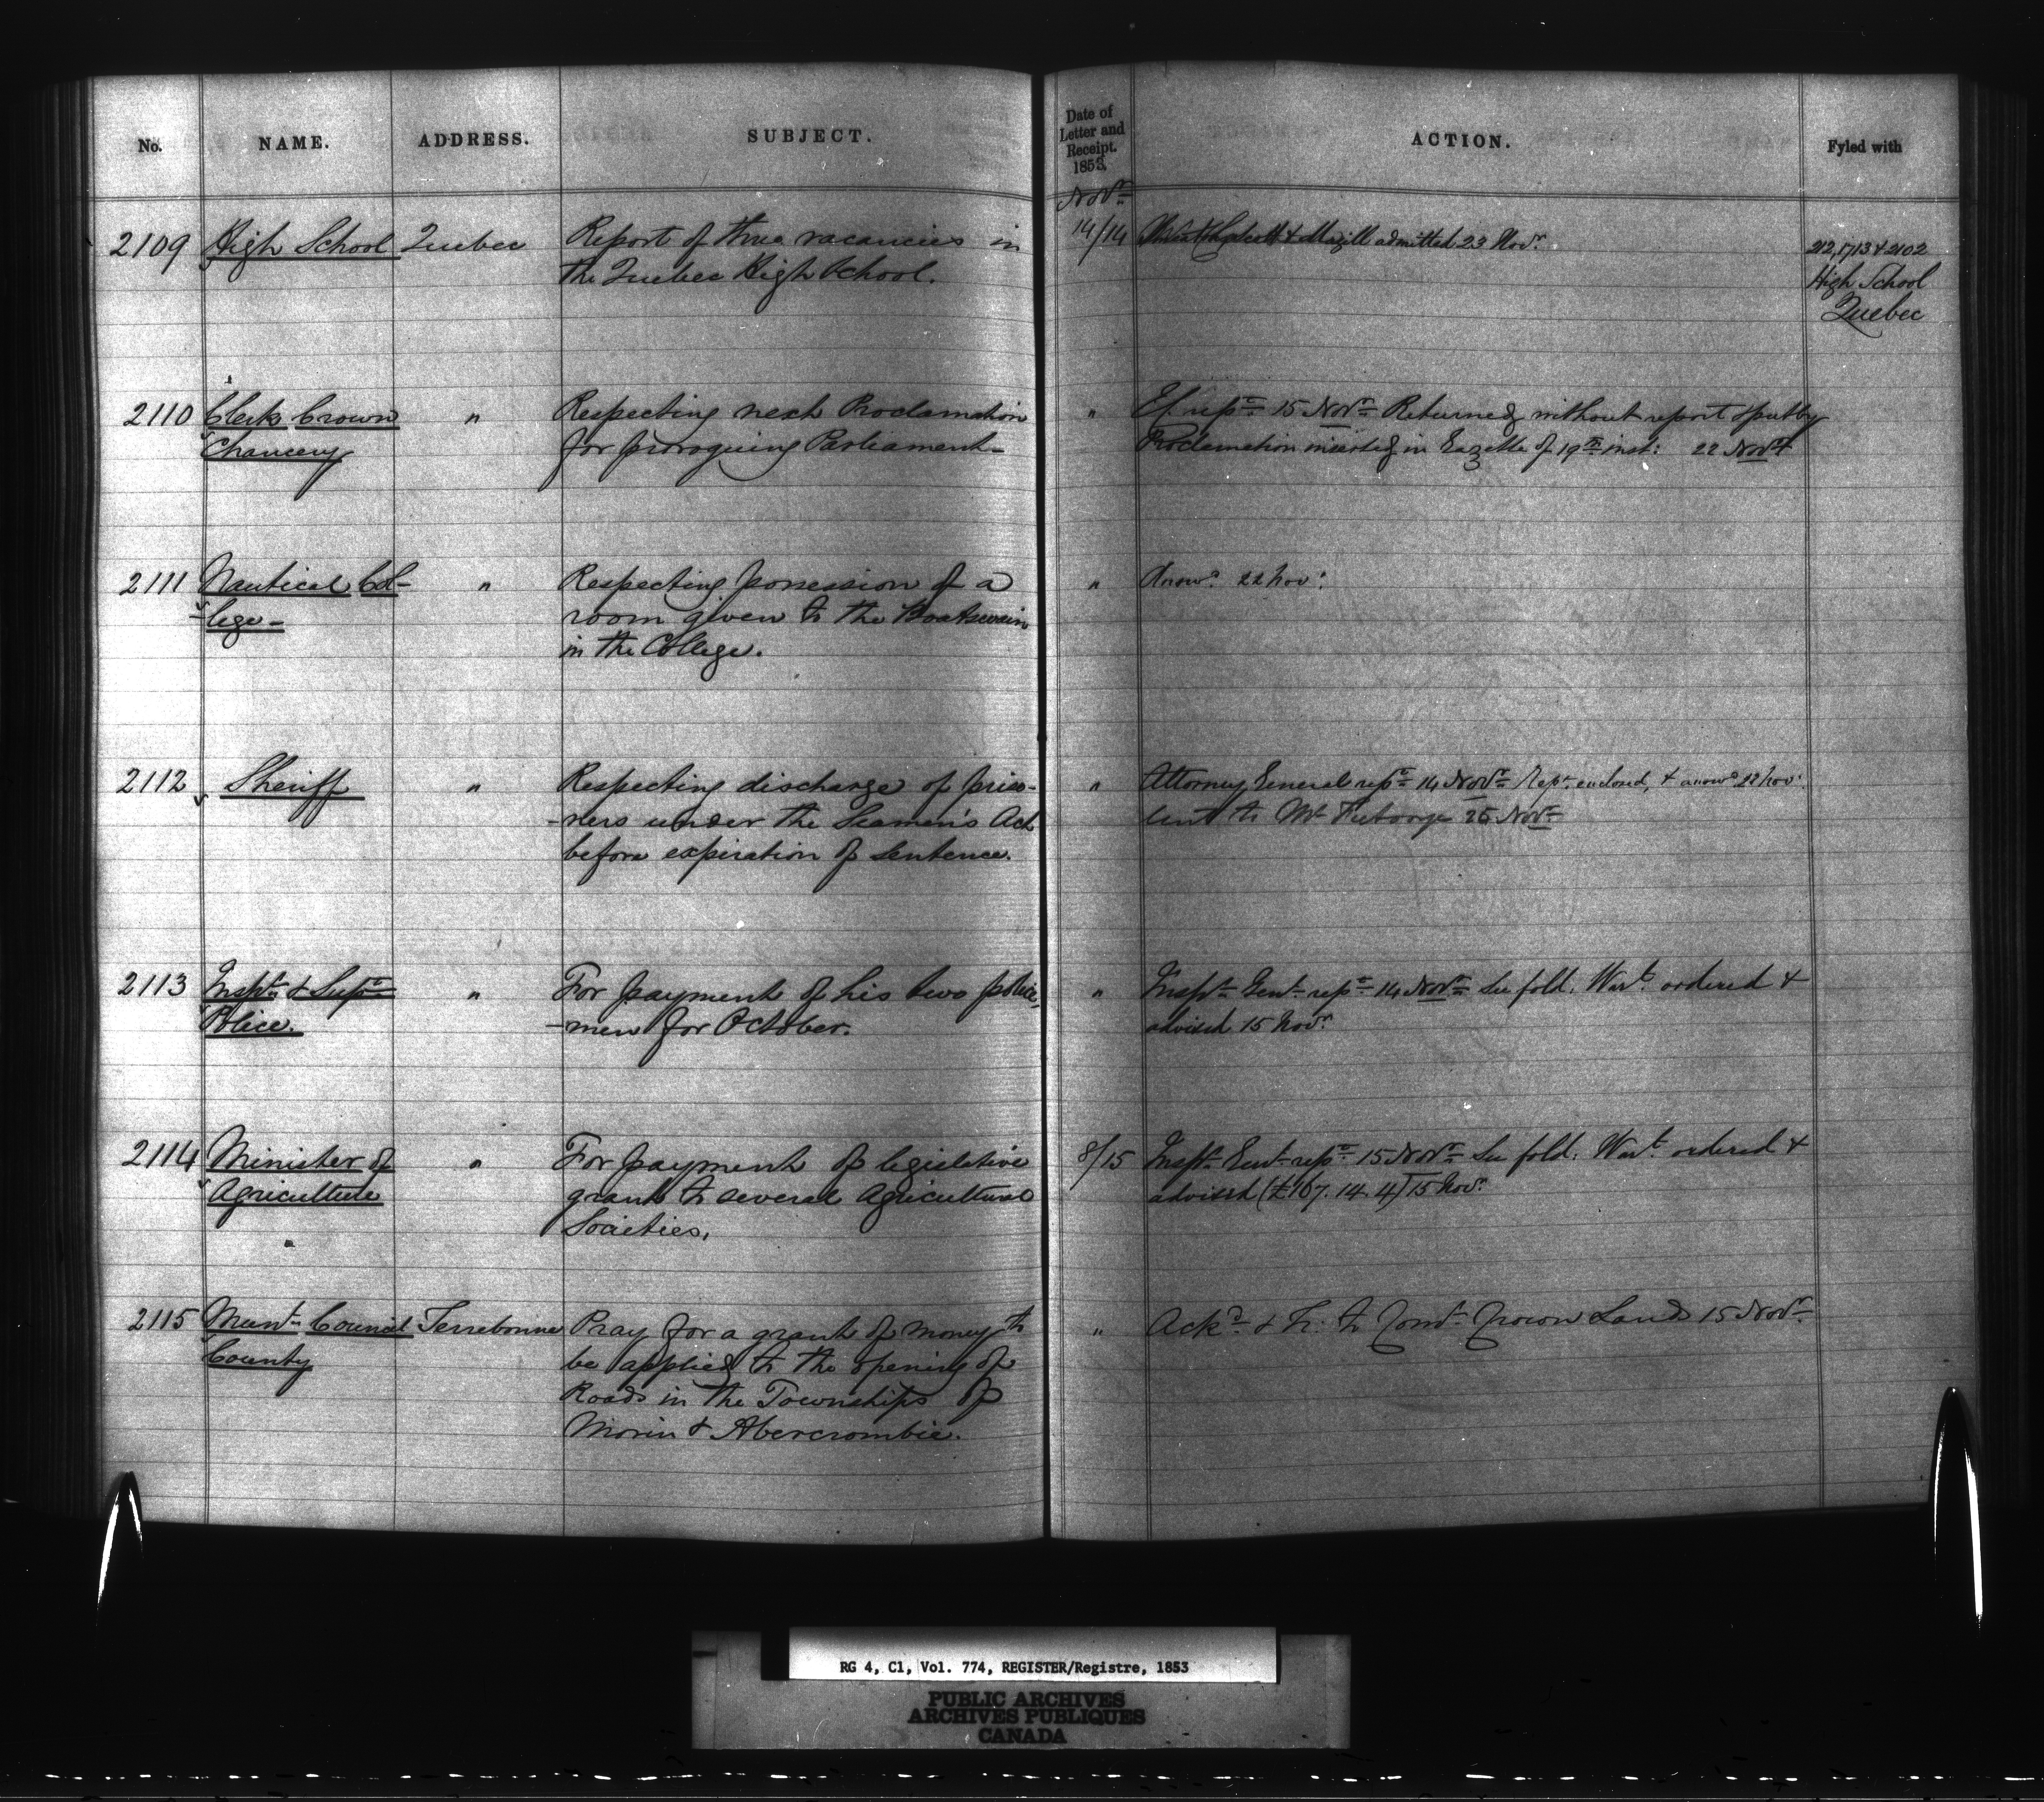 No. NAME. ADDRESS. SUBJECT. Date of Letter and Receipt. 1853. ACTION. Fyled with
Novr
2109 High School Quebec Report of three vacancies in 14/14 & Magill admitted 23 Novr 212, 1713 & 2102
the Quebec High School. High School
Quebec
2110 Clerk Crown " Respecting next Proclamation " repn 15 Novr Returned without report
Chancery for proroguing Parliament - Proclamation inserted in Gazette of 19th inst: 22 Novr
2111 Nautical Col- " Respecting possession of a " Answd 22 Nov:
-lege - room given to the Boatswain
in the College.
2112 Sheriff " Respecting discharge of priso- " Attorney General repn 14 Novr Rept enclosed, & answd 22 Nov:
-ners under the Seamen's Act to Mr 25 Novr
before expiration of sentence.
2113 Inspr & Supt " For payment of his two police- " Inspr Genl repn 14 Novr See fold. Wart ordered &
Police. -men for October. advised 15 Novr
2114 Minister of " For payment of legislative 8/15 Inspr Genl repn 15 Novr See fold. Wart ordered &
Agriculture grant to several Agricultural advised (£167. 14. 4) 15 Novr
Societies.
2115 Munl Council Terrebonne Pray for a grant of money to " Ackd & Tr. to Comr Crown Lands 15 Novr
County be applied to the opening of
Roads in the Townships of
Morin & Abercrombie.
RG 4, C1, Vol. 774, REGISTER/Registre, 1853
PUBLIC ARCHIVES
ARCHIVES PUBLIQUES
CANADA